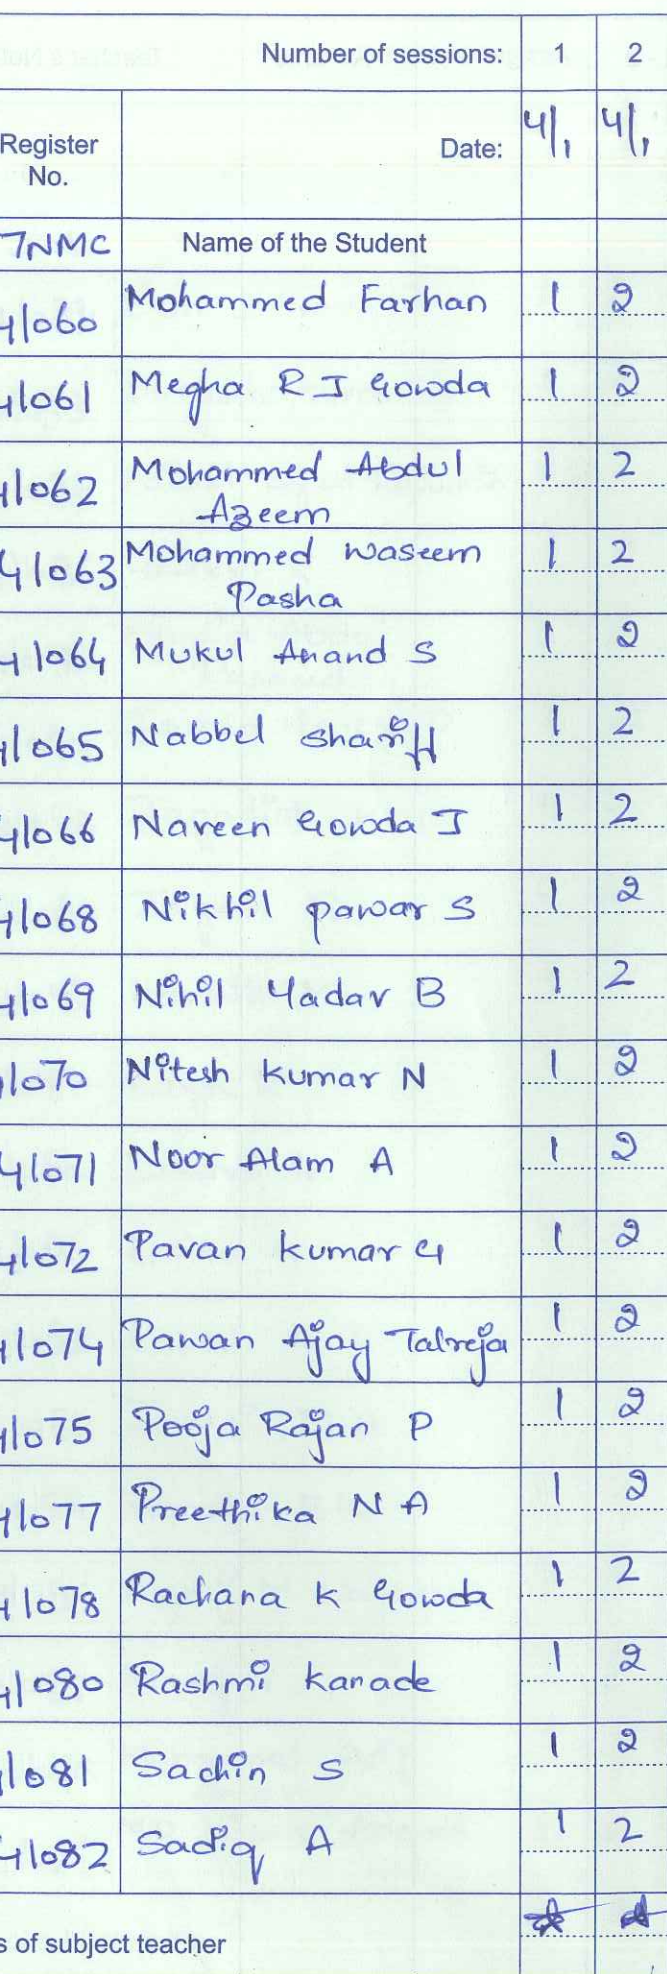 Number of sessions: 1 2
Register No. Date: 4/1 4/1
7NMC Name of the Student
41060 Mohammed Farhan 1 2
41061 Megha R J Gowda 1 2
41062 Mohammed Abdul 1 2
Azeem
41063 Mohammed waseem 1 2
Pasha
41064 Mukul Anand S 1 2
41065 Nabbel shariff 1 2
41066 Naveen Gowda J 1 2
41068 Nikhil pawar S 1 2
41069 Nihil Yadav B 1 2
41070 Nitesh kumar N 1 2
41071 Noor Alam A 1 2
41072 Pavan kumar G 1 2
41074 Pawan Ajay Talreja 1 2
41075 Pooja Rajan P 1 2
41077 Preethika N A 1 2
41078 Rachana K Gowda 1 2
41080 Rashmi kanade 1 2
41081 Sachin S 1 2
41082 Sadiq A 1 2
s of subject teacher